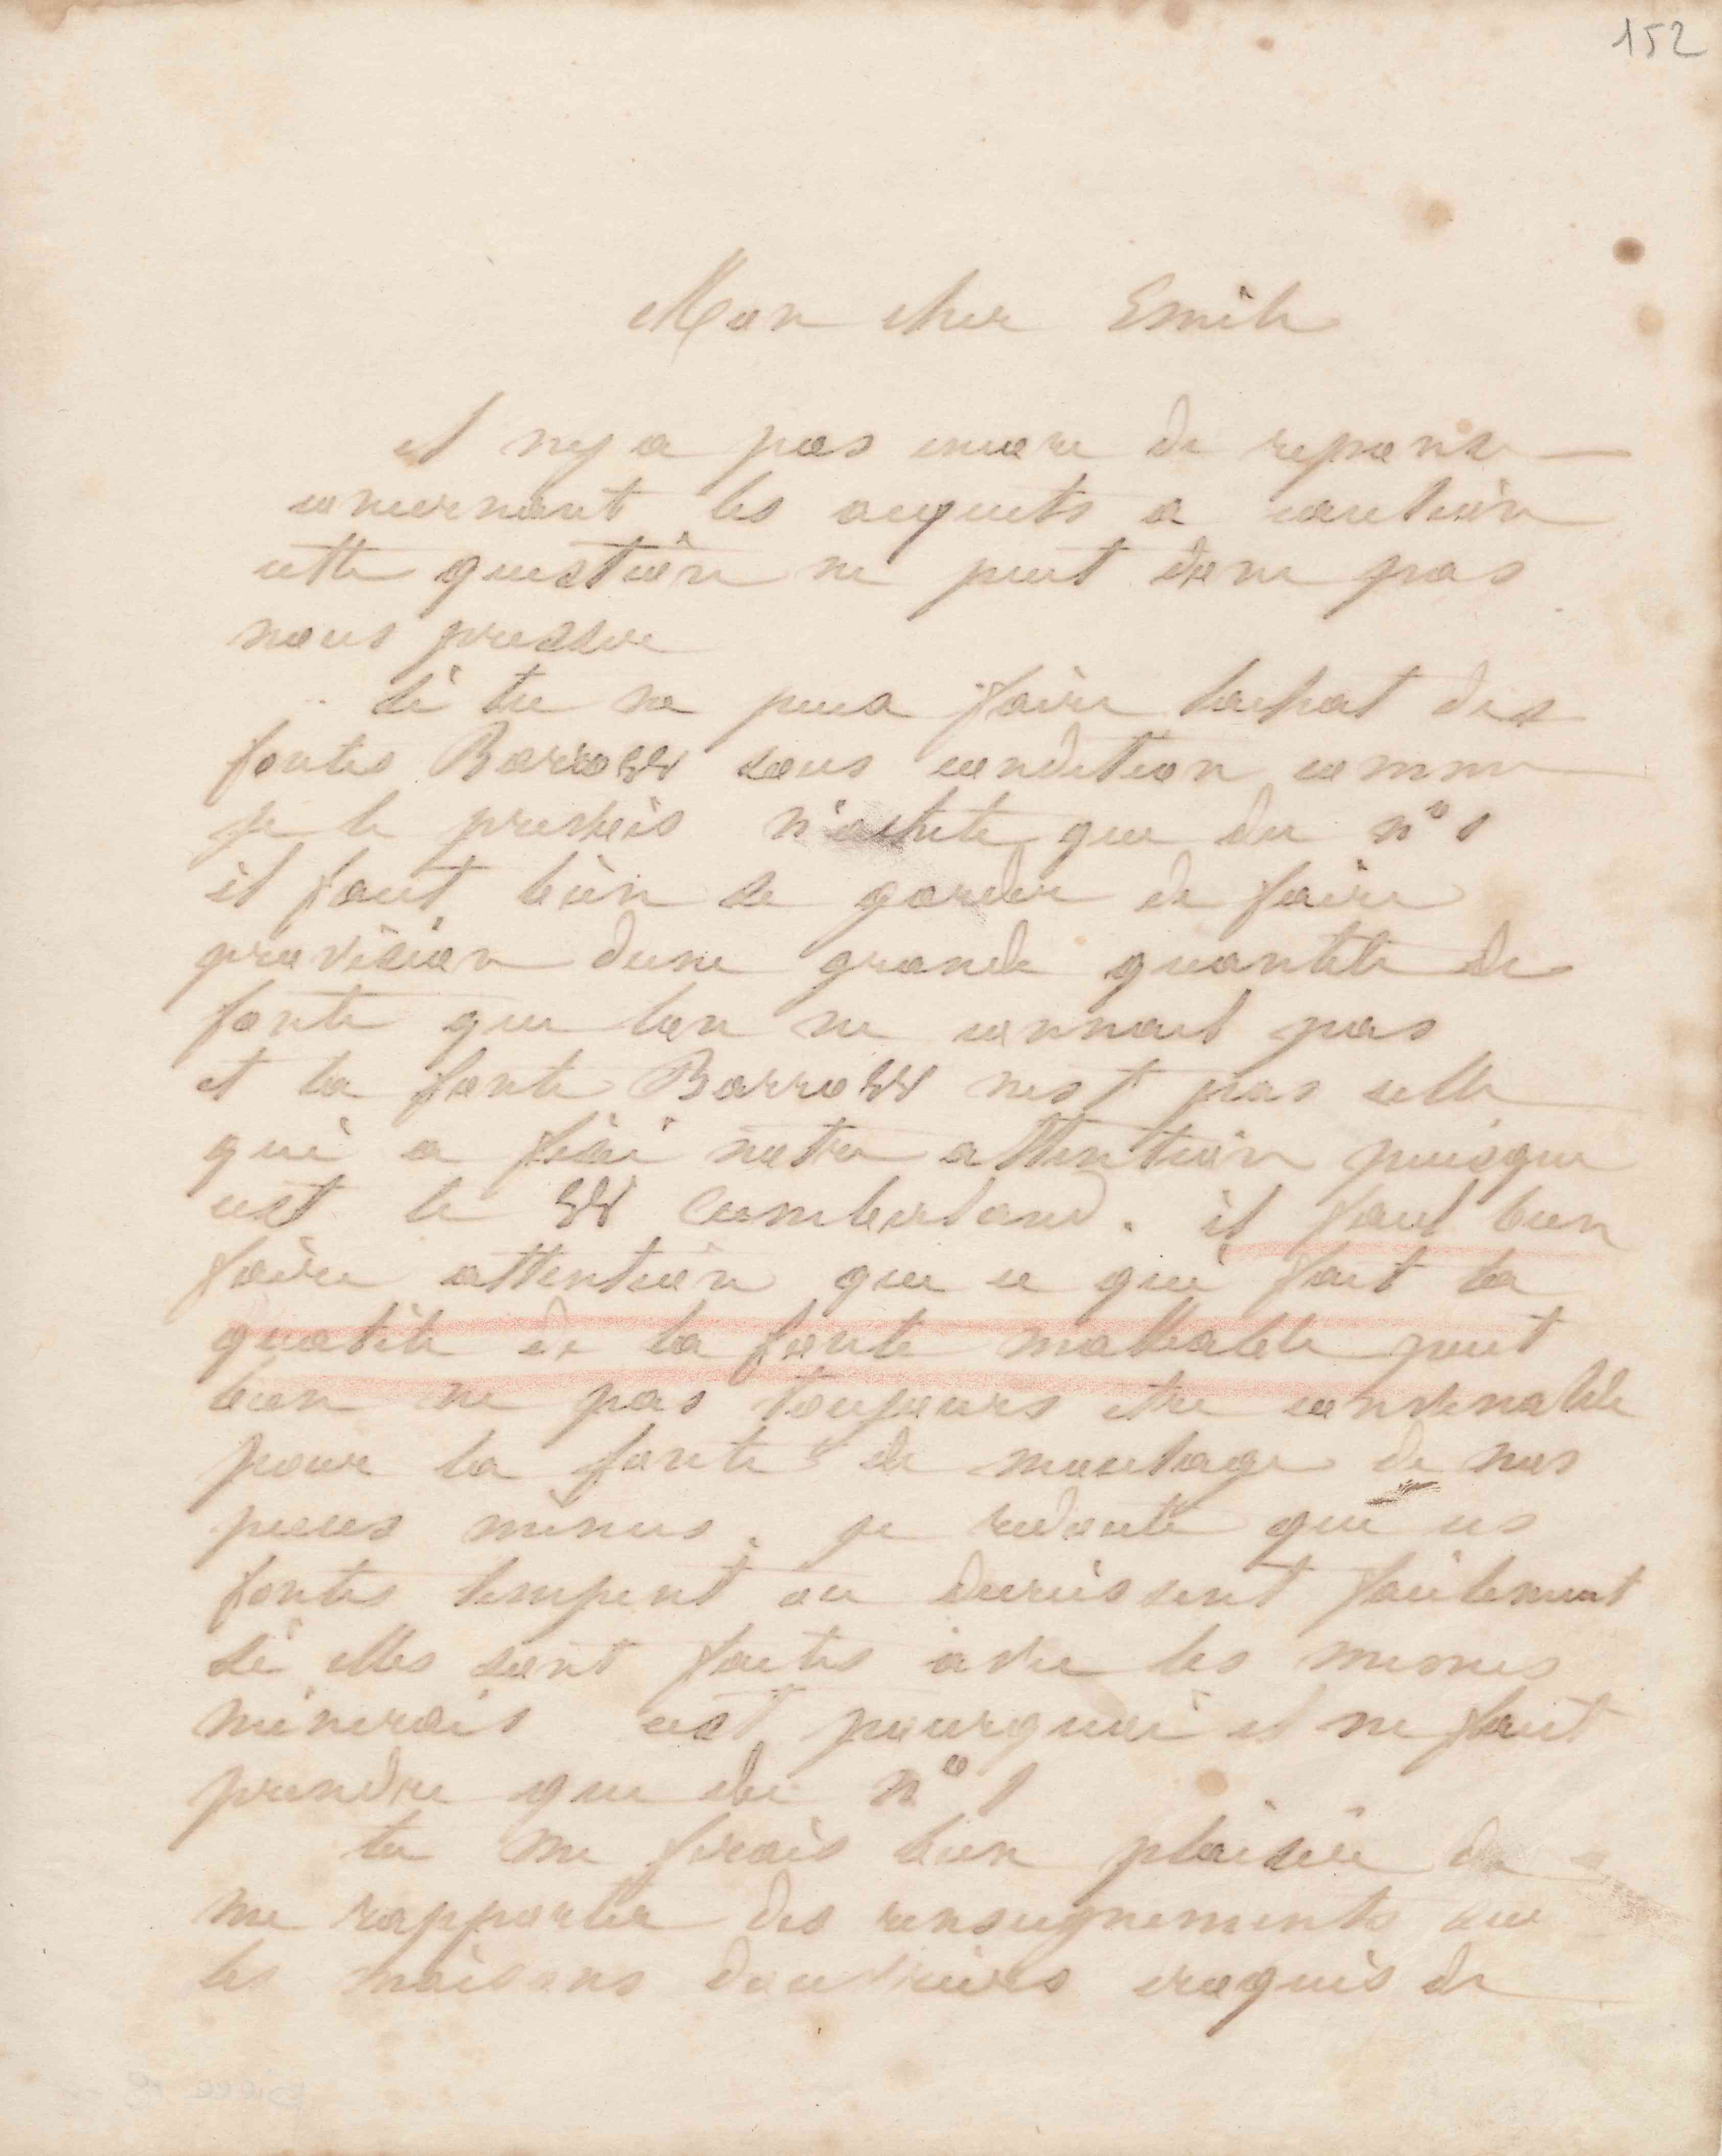 152
Mon cher Emile
il ny a pas encore de reponse
concernant les acquits a caution
cette question ne peut donc pas
nous presser
si tu ne peux faire lachat des
fontes Barrow sous condition comme
je le prescris n'achete que du n° 1
il faut bien se garder de faire
provision dune grande quantite de
fonte que lon ne connait pas
et la fonte Barrow nest pas celle
qui a fixé notre attention puisque
cest le W Cumberland. il faut bien
faire attention que ce qui fait la
qualité de la fonte malleable peut
bien ne pas toujours etre convenable
pour la fonte de moulage de nos
pieces minces. je redoute que ces
fontes trempent ou durcissent facilement
si elles sont faites avec les memes
minerais cest pourquoi il ne faut
prendre que du n° 1
tu me ferais bien plaisir de
me rapporter des renseignements sur
les maisons douvriers croquis de